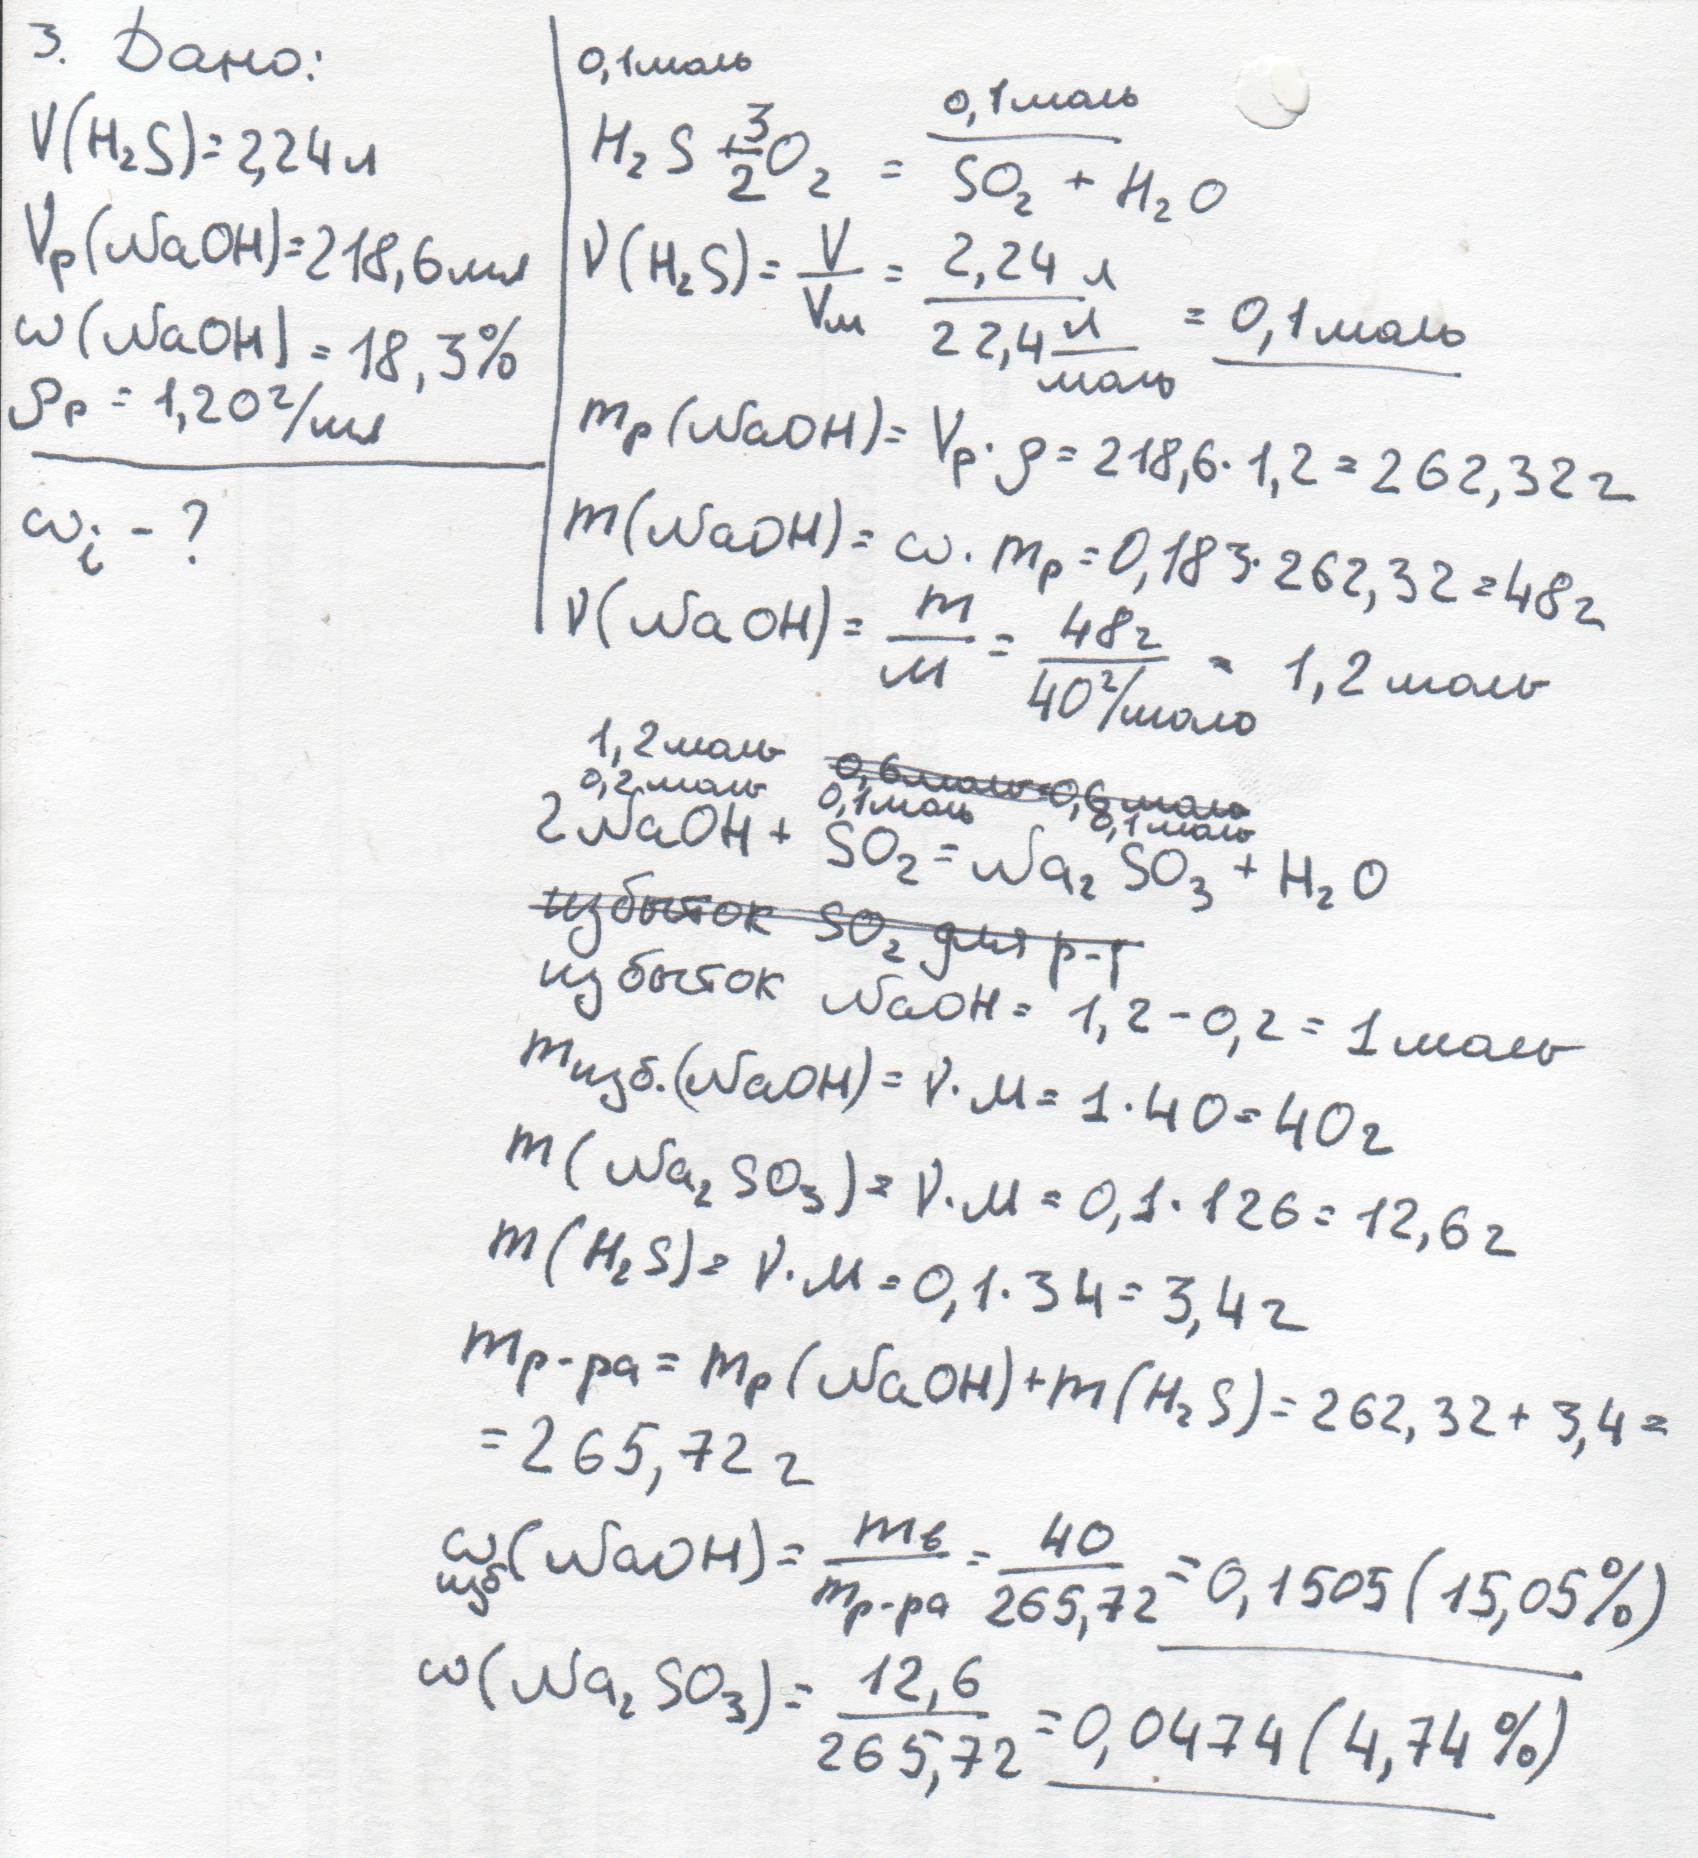 3. Дано:
V(H₂S)=2,24л
Vр(NaOH)=218,6мл
ω(NaOH)=18,3%
ρр = 1,20г/мл
ωᵢ - ?
0,1моль
0,1моль
H₂S + 3/2 O₂ = SO₂ + H₂O
ν(H₂S) = V/Vм = 2,24 л / 22,4 л/моль = 0,1моль
mр(NaOH)= Vр·ρ = 218,6·1,2 = 262,32г
m(NaOH) = ω·mр = 0,183·262,32 = 48г
ν(NaOH) = m/M = 48г / 40г/моль = 1,2 моль
1,2моль 0,6моль 0,6моль
0,2моль 0,1моль 0,1моль
2NaOH + SO₂ = Na₂SO₃ + H₂O
избыток SO₂ для р-р
избыток NaOH = 1,2-0,2 = 1моль
mизб.(NaOH) = ν·M = 1·40 = 40г
m(Na₂SO₃) = ν·M = 0,1·126 = 12,6г
m(H₂S) = ν·M = 0,1·34 = 3,4г
mр-ра = mр(NaOH)+m(H₂S) = 262,32 + 3,4 =
= 265,72г
ωизб(NaOH) = mв/mр-ра = 40/265,72 = 0,1505 (15,05%)
ω(Na₂SO₃) = 12,6/265,72 = 0,0474 (4,74%)